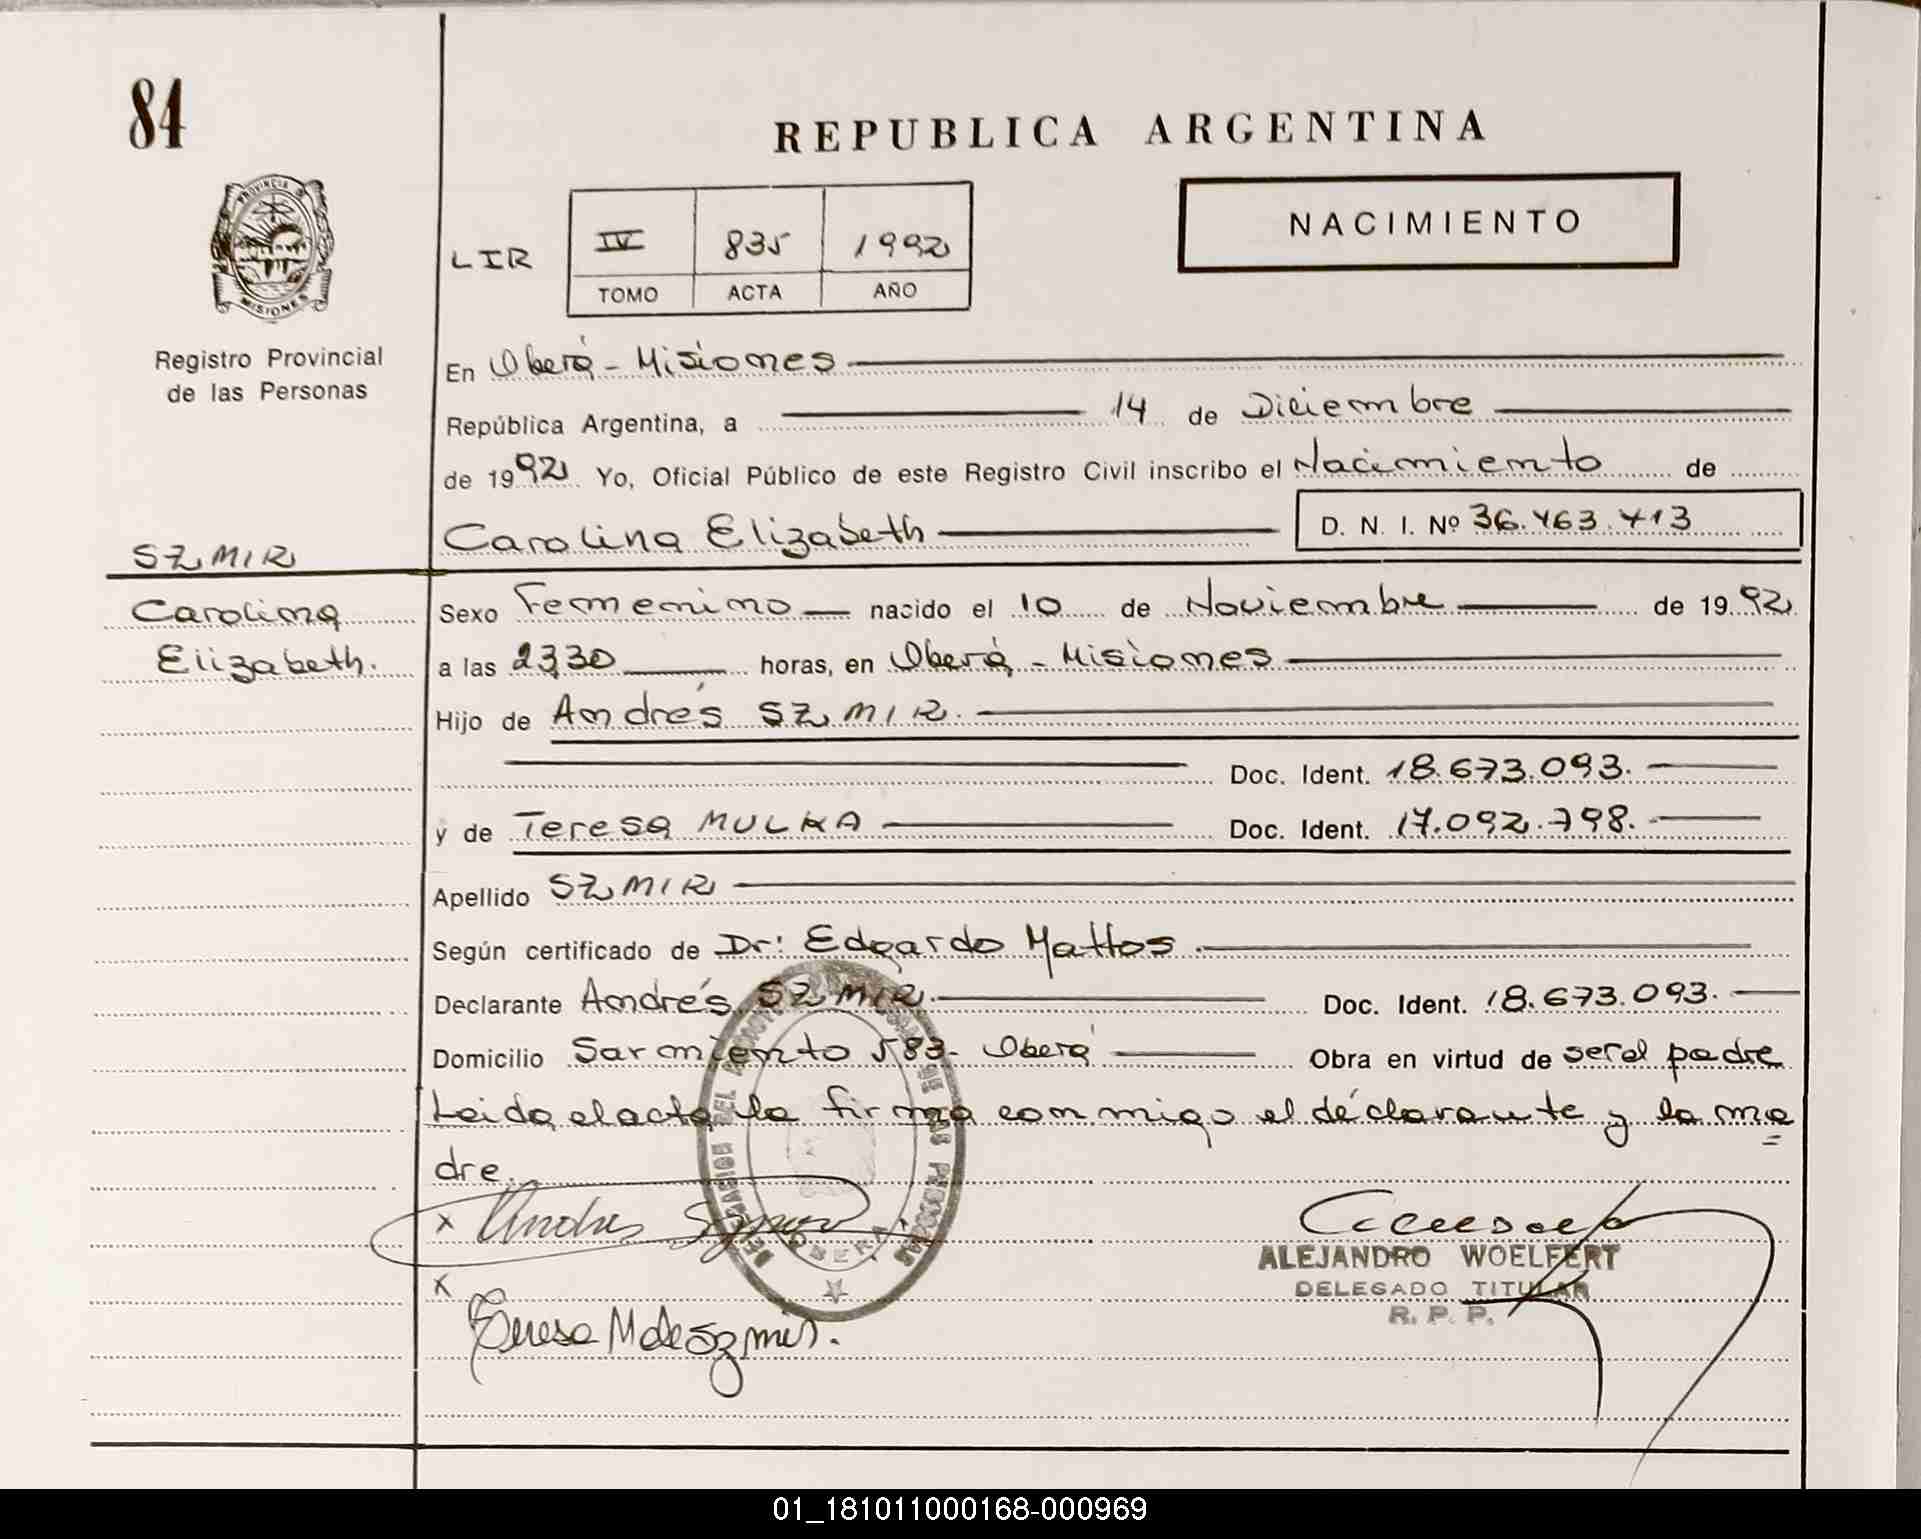 84
REPUBLICA ARGENTINA
PROVINCIA DE
MISIONES
NACIMIENTO
LIR
IV 835 1992
TOMO ACTA AÑO
Registro Provincial
de las Personas
En Oberá - Misiones
República Argentina, a 14 de Diciembre
de 1992 Yo, Oficial Público de este Registro Civil inscribo el Nacimiento de
Carolina Elizabeth D. N. I. Nº 36.463.413
SZMIR
Carolina
Elizabeth.
Sexo Femenino nacido el 10 de Noviembre de 1992
a las 23,30 horas, en Oberá - Misiones
Hijo de Andrés SZMIR.
Doc. Ident. 18.673.093.
y de Teresa MULKA Doc. Ident. 17.092.798.
Apellido SZMIR
Según certificado de Dr: Edgardo Mattos.
Declarante Andrés SZMIR. Doc. Ident. 18.673.093.
Domicilio Sarmiento 583- Oberá Obra en virtud de ser el padre
Leida el acta la firma conmigo el declarante y la ma
dre.
x Andrés Szmir
x
Teresa M de Szmir.
OBERA
ALEJANDRO WOELFERT
DELEGADO TITULAR
R. P. P.
01_181011000168-000969